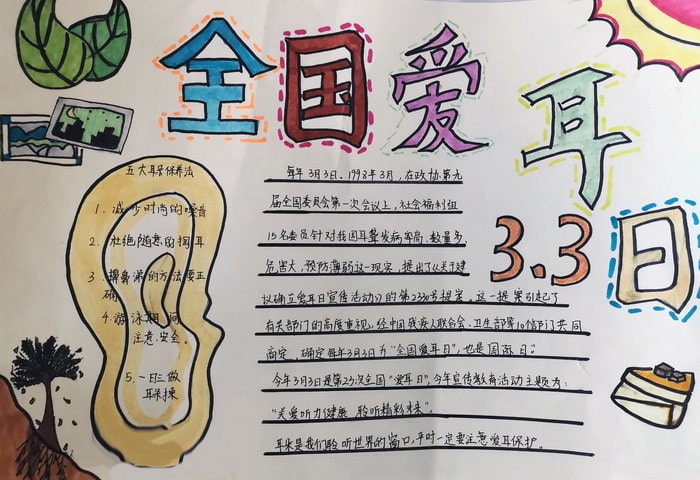 全国爱耳日
3.3
五大耳朵保养法
1. 减少时尚的噪音
2. 杜绝随意的掏耳
3. 擤鼻涕的方法要正
确
4. 游泳期间
注意安全。
5. 一日三做
耳保操
每年3月3日。1998年3月，在政协第九
届全国委员会第一次会议上，社会福利组
15名委员针对我国耳聋发病率高、数量多、
危害大，预防薄弱这一现实，提出了《关于建
议确立爱耳日宣传活动》的第2330号提案。这一提案引起了
有关部门的高度重视，经中国残疾人联合会、卫生部等10个部门共同
商定，确定每年3月3日为“全国爱耳日”，也是国际日。
今年3月3日是第23次全国“爱耳日”，今年宣传教育活动主题为：
“关爱听力健康 聆听精彩未来”。
耳朵是我们聆听世界的窗口，平时一定要注意爱耳保护。